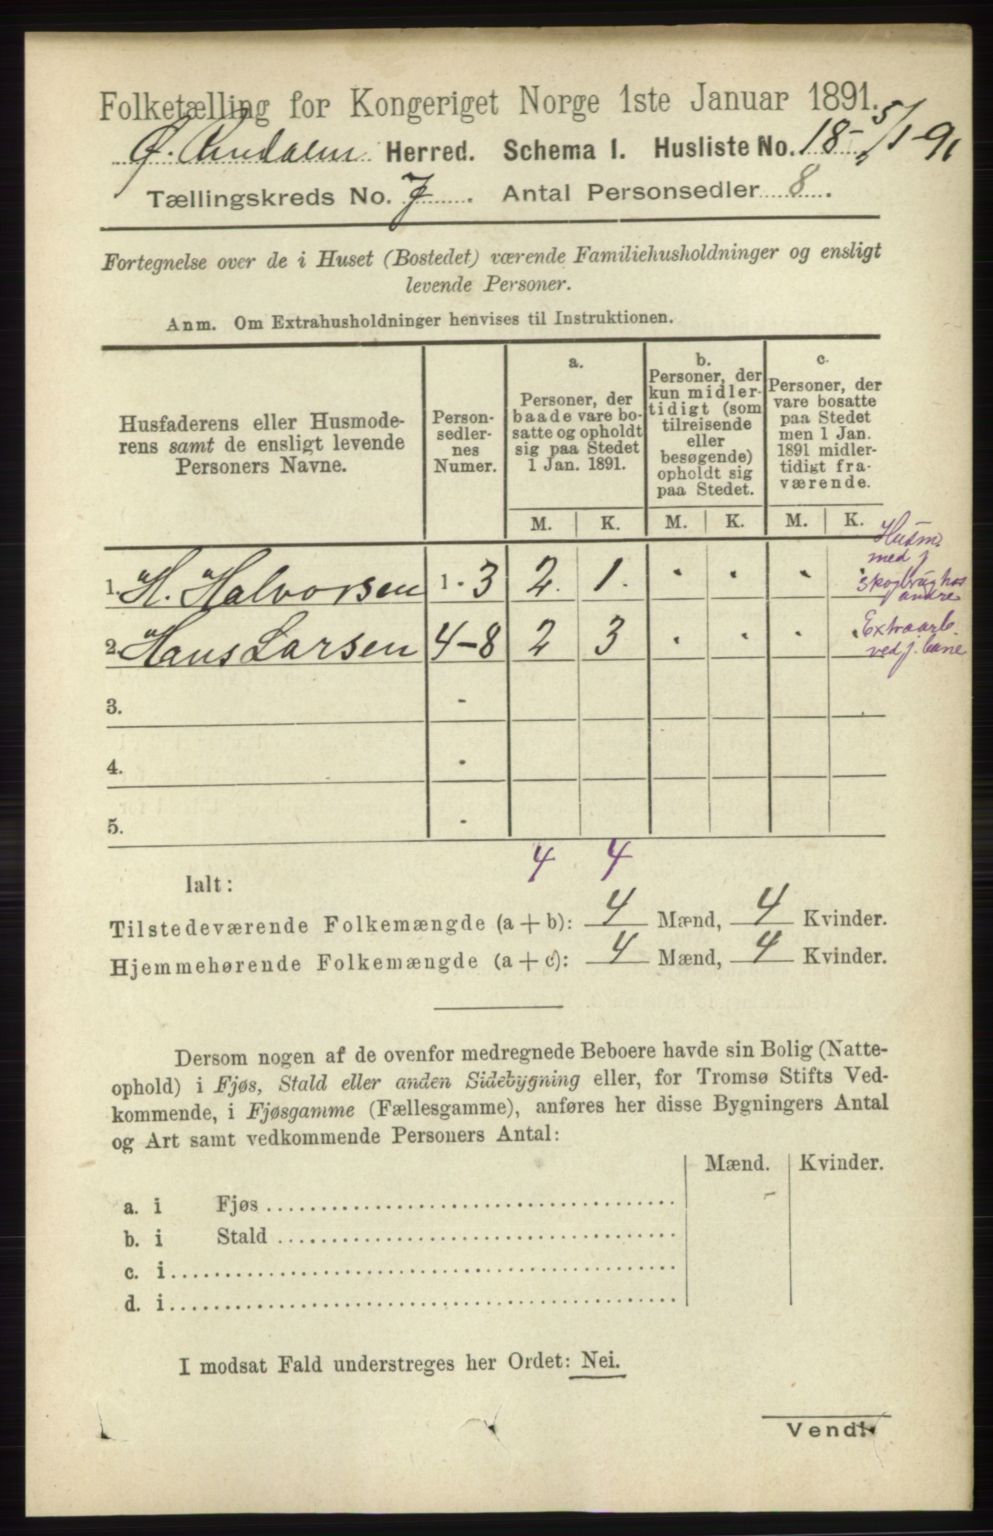 Folketælling for Kongeriget Norge 1ste Januar 1891.
Ø. Herred. Schema I. Husliste No. 18 - 5/1-91
Tællingskreds No. 7. Antal Personsedler 8.
Fortegnelse over de i Huset (Bostedet) værende Familiehusholdninger og ensligt
levende Personer.
Anm. Om Extrahusholdninger henvises til Instruktionen.
Husfaderens eller Husmode-
rens samt de ensligt levende
Personers Navne.
Person-
sedler-
nes
Numer.
a.
Personer, der
baade vare bo-
satte og opholdt
sig paa Stedet
1 Jan. 1891.
b.
Personer, der
kun midler-
tidigt (som
tilreisende
eller
besøgende)
opholdt sig
paa Stedet.
c.
Personer, der
vare bosatte
paa Stedet
men 1 Jan.
1891 midler-
tidigt fra-
værende.
M. K. M. K. M. K.
1. H. Halvorsen 1 - 3 2 1
Husm.
med j
skogbrug hos
andre
2. Hans Larsen 4-8 2 3
Extraarb.
ved j. bane
3. -
4. -
5. -
4 4
Ialt:
Tilstedeværende Folkemængde (a + b): 4 Mænd, 4 Kvinder.
Hjemmehørende Folkemængde (a + c): 4 Mænd, 4 Kvinder.
Dersom nogen af de ovenfor medregnede Beboere havde sin Bolig (Natte-
ophold) i Fjøs, Stald eller anden Sidebygning eller, for Tromsø Stifts Ved-
kommende, i Fjøsgamme (Fællesgamme), anføres her disse Bygningers Antal
og Art samt vedkommende Personers Antal:
Mænd. Kvinder.
a. i Fjøs
b. i Stald
c. i
d. i
I modsat Fald understreges her Ordet: Nei.
Vend!